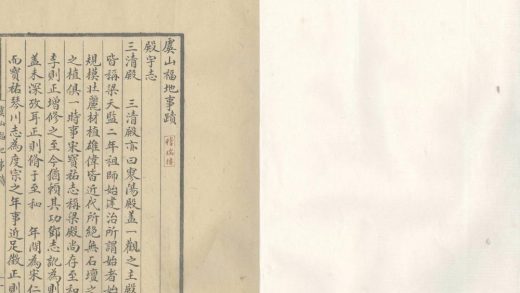 虞山福地事蹟
殿宇志
三清殿　三清殿亦曰寥陽殿蓋一觀之主殿
皆稱梁天監二年祖師始建治所謂始者始
規模壮麗材植雄偉皆近代所絕無石壇之
之植俱一時事宋寳祐志稱梁殿尚存至和
李則正增修之至今猶賴其功鄧志訛為則
蓋未深攷耳正則脩于至和　年間為宋仁
而寳祐琴川志為度宗之年事近足徵正則